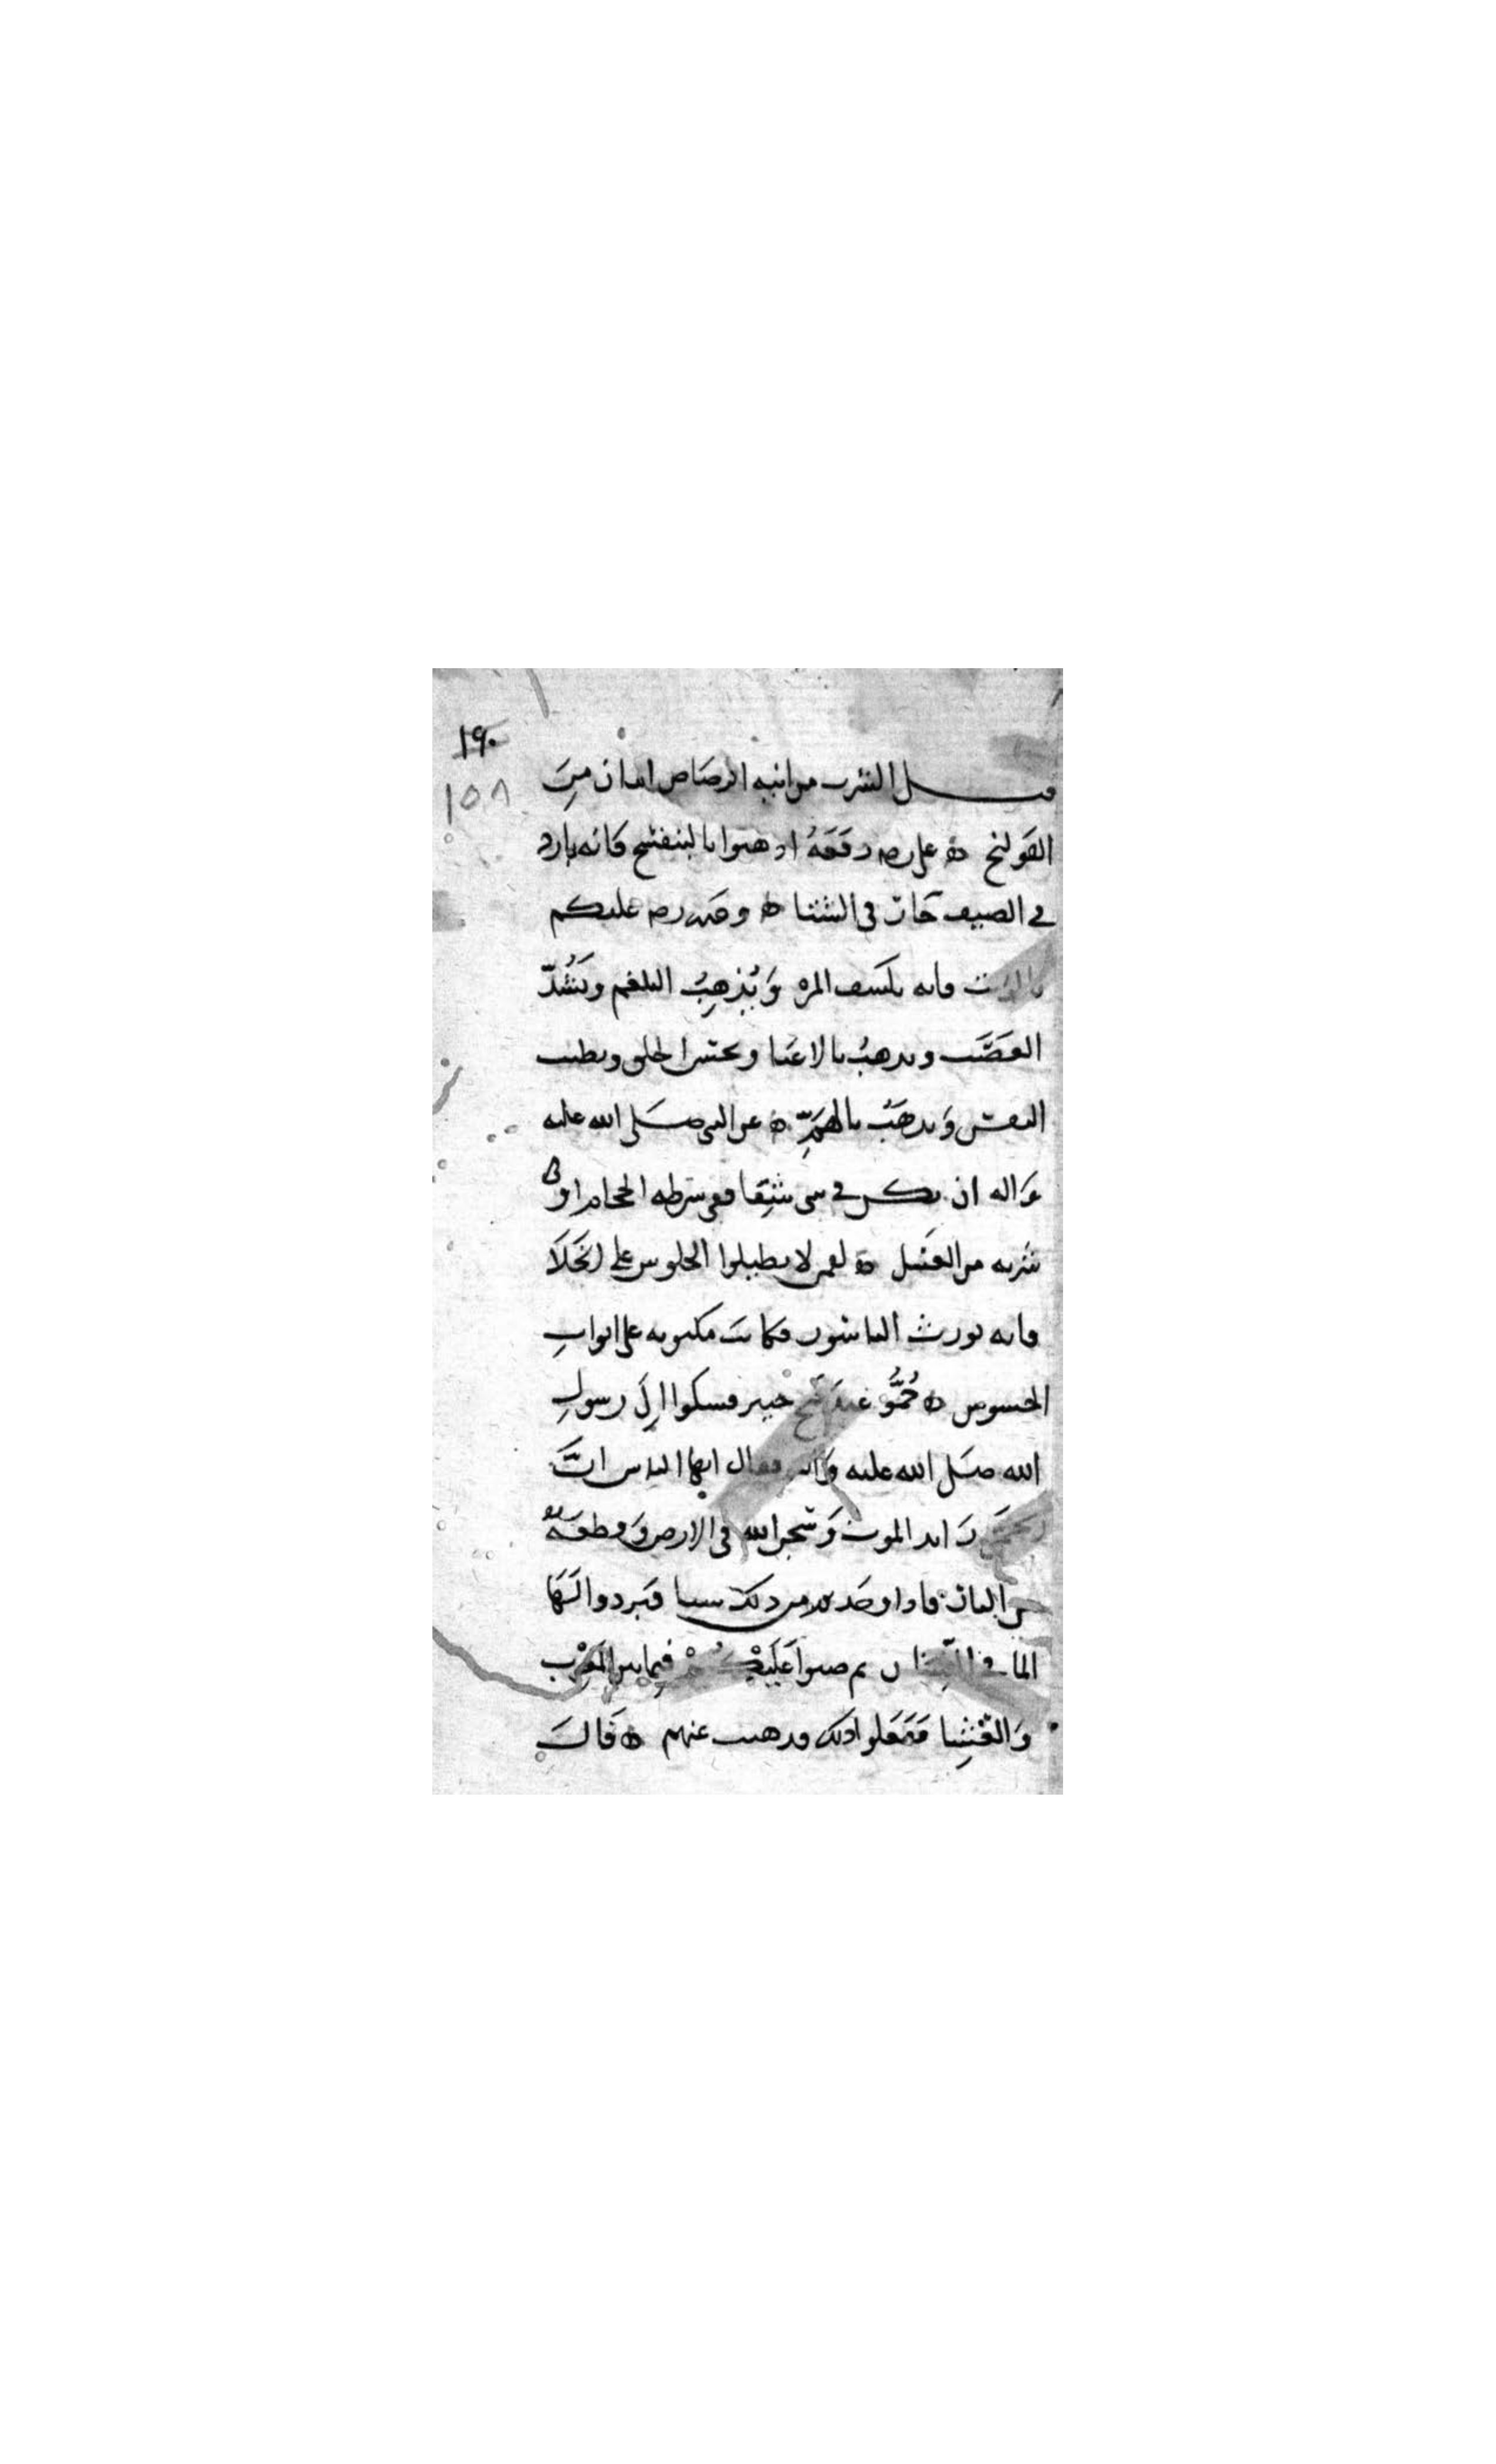 ١٩٠
١٥٨
قيل الشرب من انيه الرصاص امان من
القولنج ه علي رضه رفعه ادهنوا بالبنفسج فانه بارد
في الصيف حار في الشتا ه وعنه رضه عليكم
بالزيت فانه يكسف المره ويذهب البلغم ويشد
العصب ويذهب بالاعيا ويحسن الخلق ويطيب
النفس ويذهب بالهم ه عن النبي صلى الله عليه
واله ان يكن في شي شفا ففي شرطه الحجام او في
شربه من العسل ه لقمن لا يطيلوا الجلوس على الخلا
فانه يورث الباسور فكانت مكتوبه على ابواب
الحشوش ه حمو عند فتح خيبر فشكوا الى رسول
الله صلى الله عليه واله فقال ايها الناس ان
الحمى رايد الموت وسجن الله في الارض وقطعه
من النار فاذا وجدتم من ذلك شيا فبردوا لها
الما في الشنان ثم صبوا عليكم فيما بين المغرب
والعشا ففعلوا ذلك فذهبت عنهم ه قال